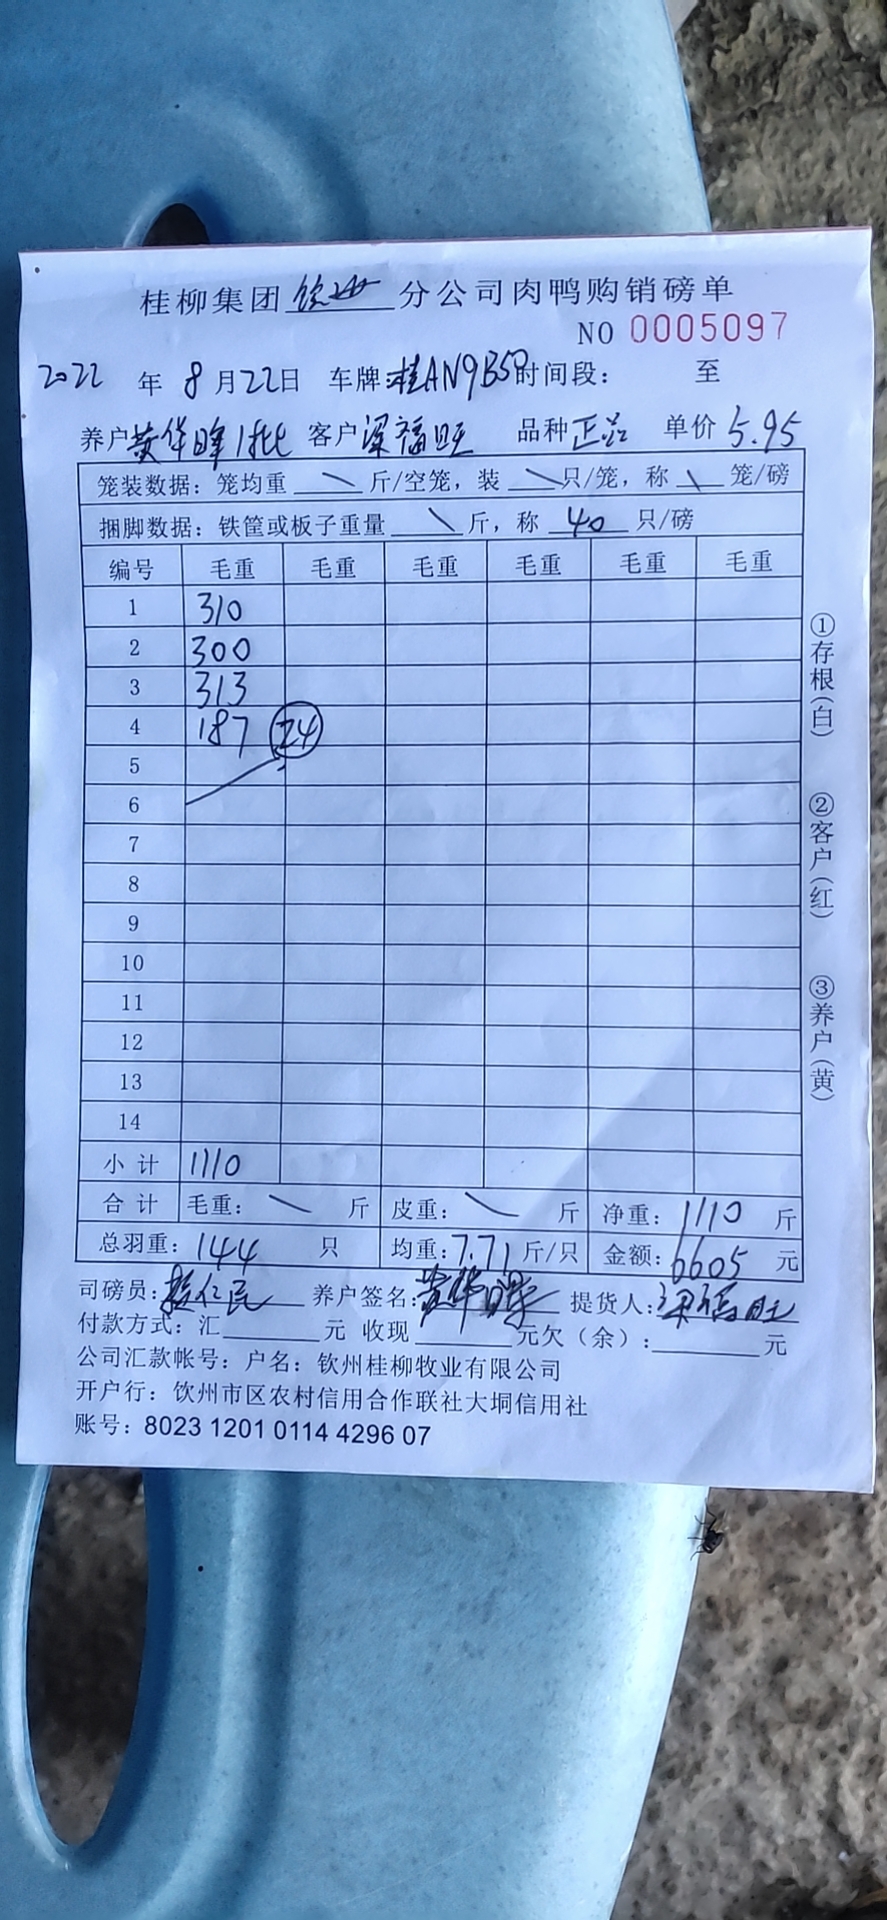 桂柳集团 钦州 分公司肉鸭购销磅单
NO 0005097
2022 年 8 月 22 日 车牌:桂AN9B50 时间段: 至
养户 黄华晖1批 客户 梁福旺 品种 正品 单价 5.95
笼装数据:笼均重 \ 斤/空笼,装 \ 只/笼,称 \ 笼/磅
捆脚数据:铁筐或板子重量 \ 斤,称 40 只/磅
编号 毛重 毛重 毛重 毛重 毛重 毛重
1 310
2 300
3 313
4 187 24
5
6
7
8
9
10
11
12
13
14
小计 1110
合计 毛重: \ 斤 皮重: \ 斤 净重: 1110 斤
总羽重: 144 只 均重: 7.71 斤/只 金额: 6605 元
司磅员: 仁民 养户签名: 黄华晖 提货人: 梁福旺
付款方式:汇 元 收现 元欠(余): 元
公司汇款帐号:户名:钦州桂柳牧业有限公司
开户行:钦州市区农村信用合作联社大垌信用社
账号:8023 1201 0114 4296 07
①存根(白)
②客户(红)
③养户(黄)